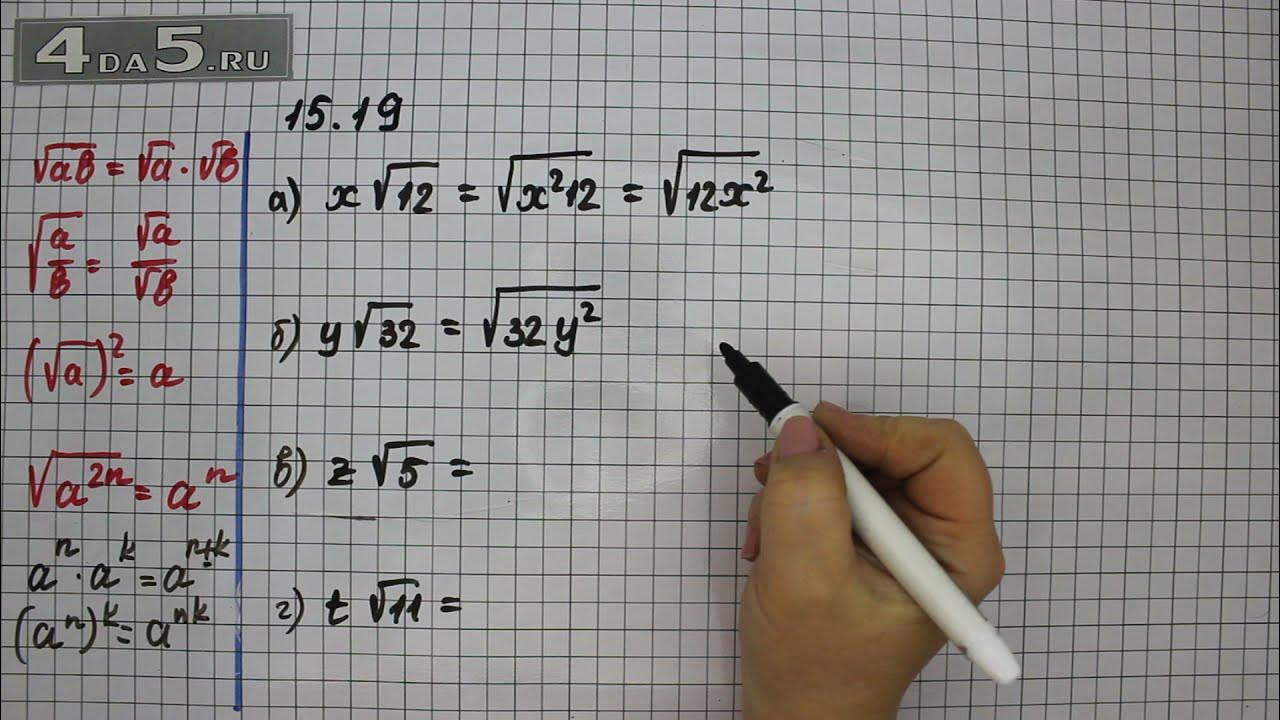 4DA5.RU
15.19
√ab = √a · √b
√(a/b) = √a/√b
(√a)² = a
√(a²ⁿ) = aⁿ
aⁿ · aᵏ = aⁿ⁺ᵏ
(aⁿ)ᵏ = aⁿᵏ
а) x √12 = √(x²12) = √(12x²)
б) y √32 = √(32y²)
в) z √5 =
г) t √11 =